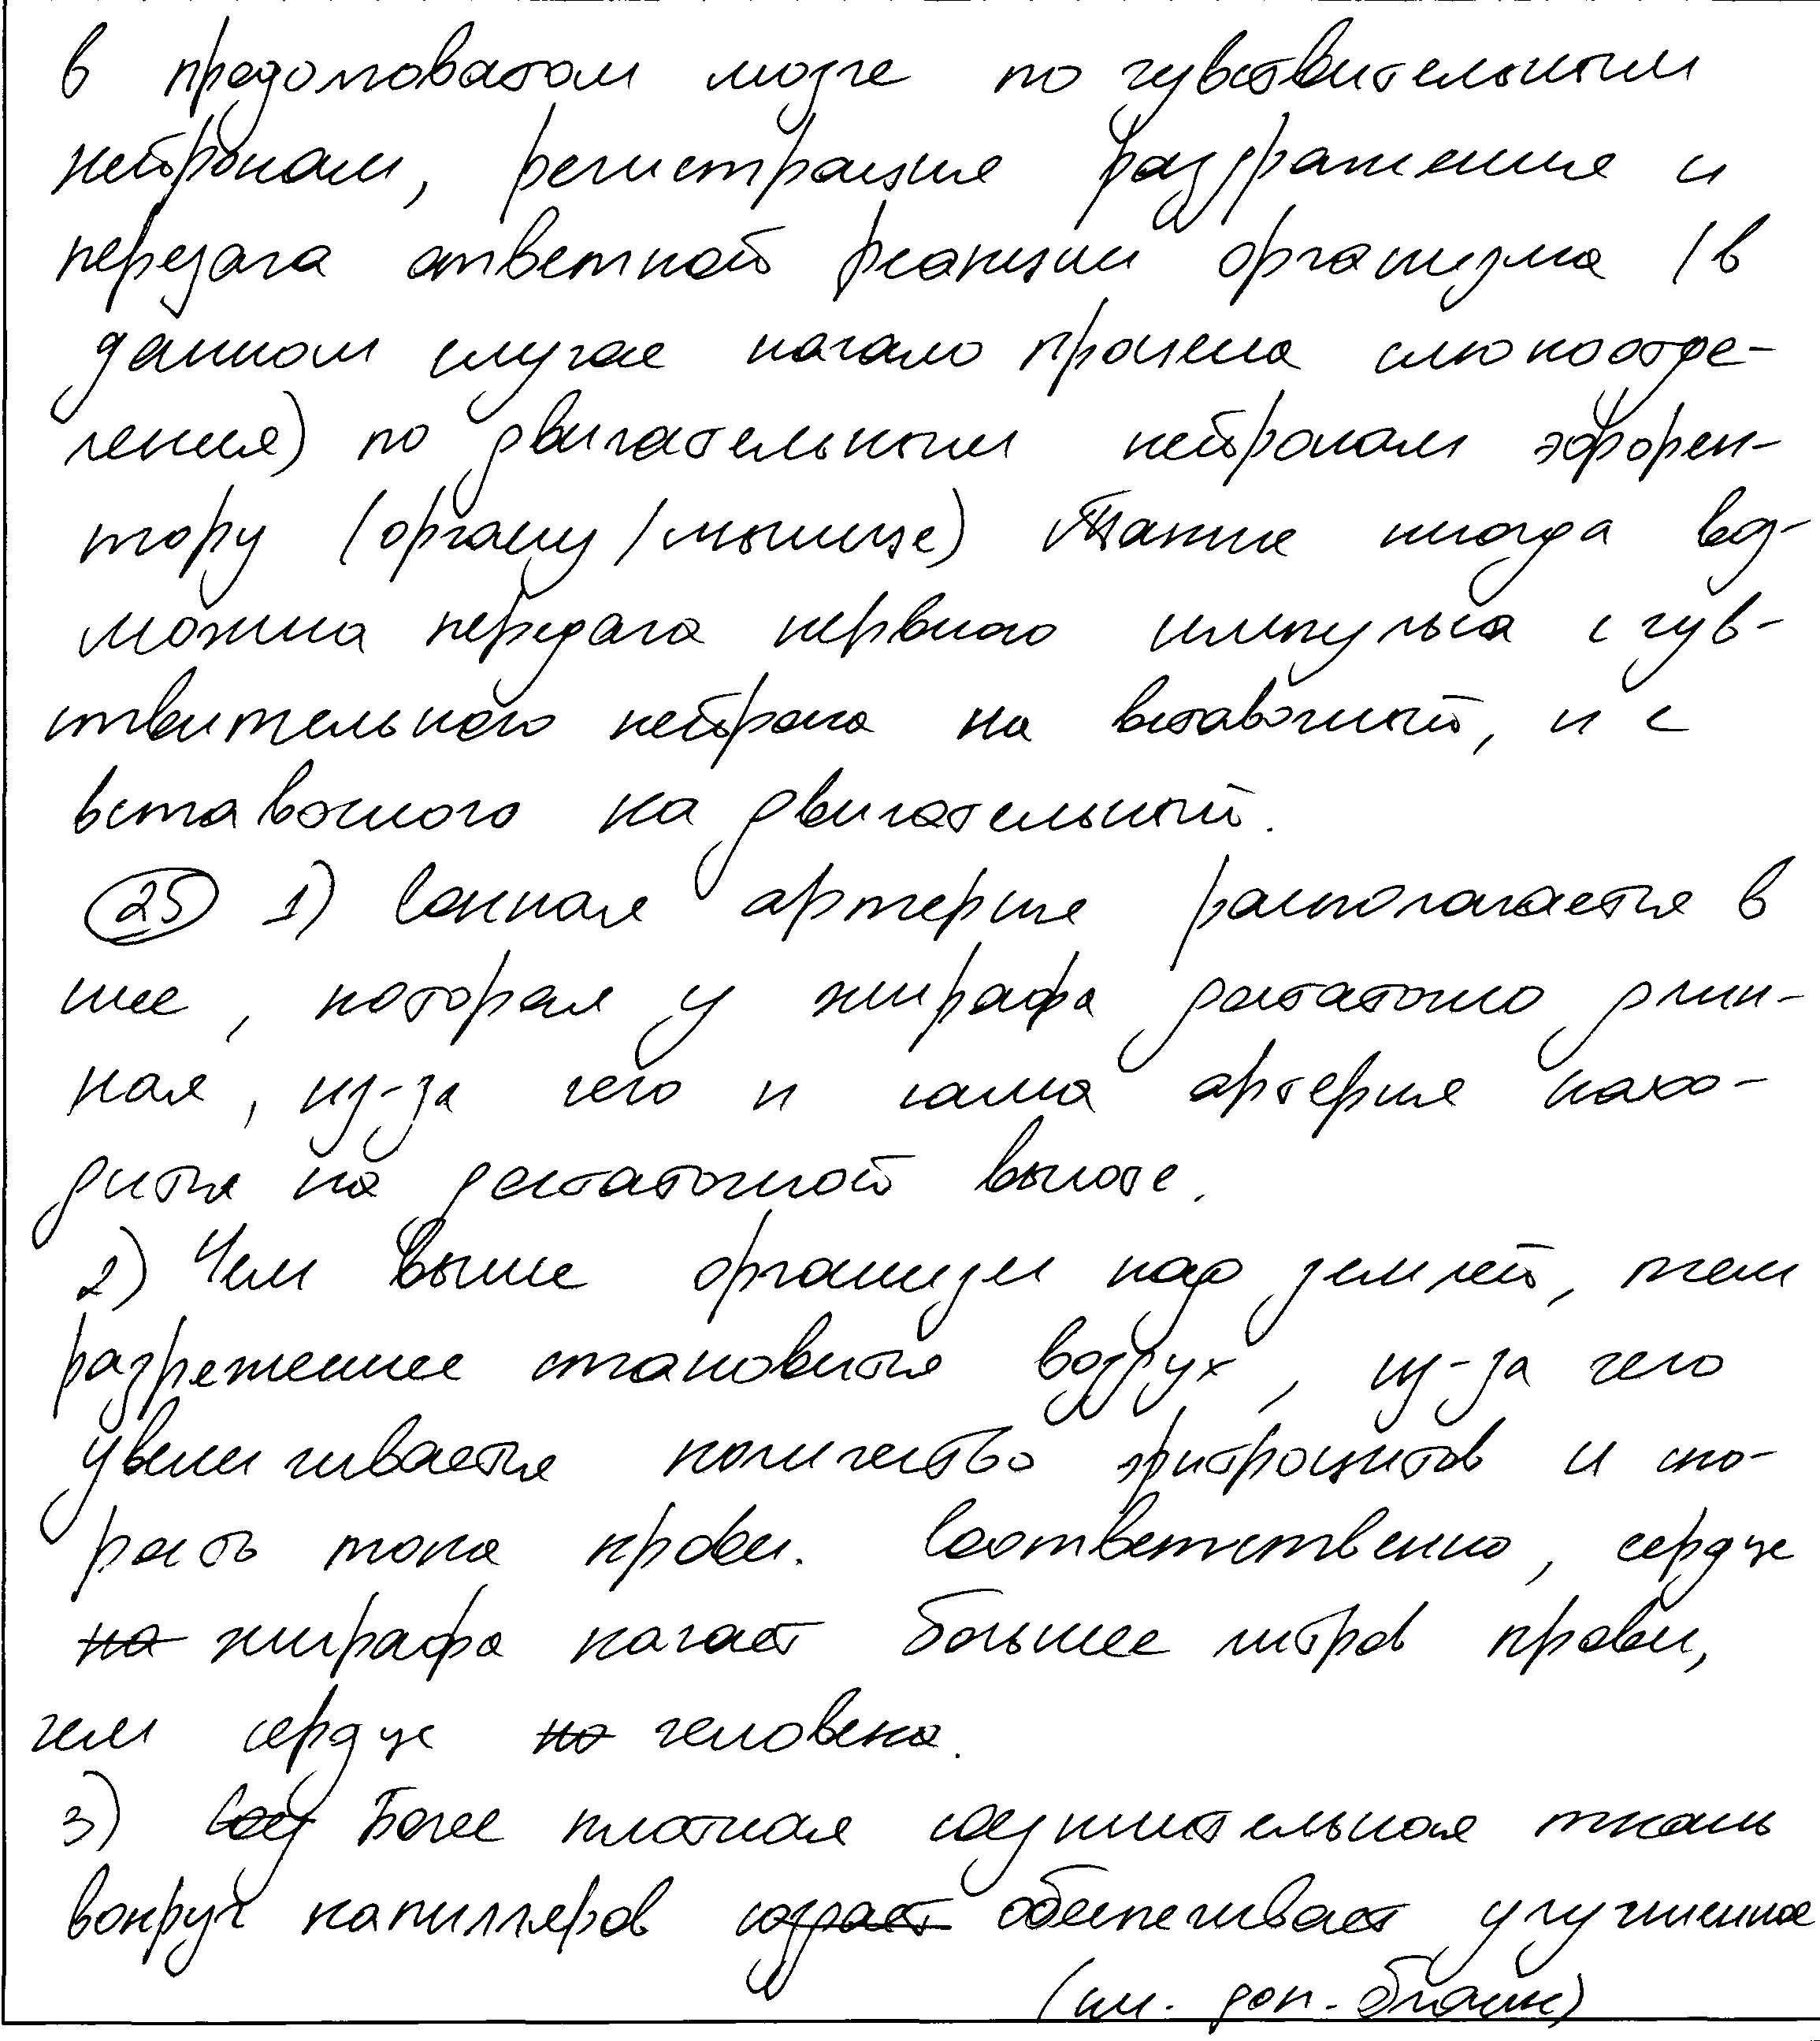 в продолговатом мозге по чувствительным
нейронам, регистрация раздражения и
передача ответной реакции организма (в
данном случае начало процесса слюноотде-
ления) по двигательным нейронам эффорен-
тору (органу/мышце) Также иногда воз-
можна передача нервного импульса с чув-
ствительного нейрона на вставочный, и с
вставочного на двигательный.
25 1) Сонная артерия располагается в
шее, которая у жирафа достаточно длин-
ная, из-за чего и сама артерия нахо-
дится на достаточной высоте.
2) Чем выше организм над землей, тем
разреженнее становится воздух, из-за чего
увеличивается количество эритроцитов и ско-
рость тока крови. Соответственно, сердце
на жирафа качает больше литров крови,
чем сердце на человека.
3) Сое Более плотная соединительная ткань
вокруг капилляров создает обеспечивает улучшенное
(см. доп. бланк)